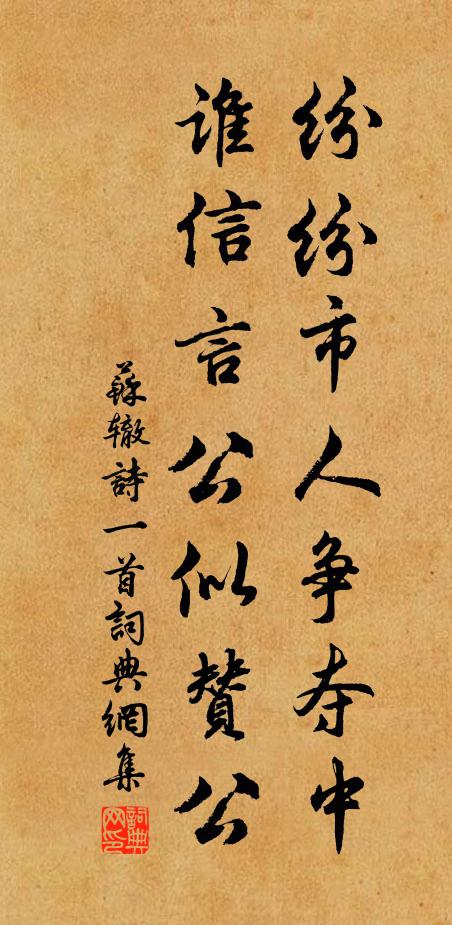 纷纷市人争夺中
谁信言公似赞公
蘇辙詩一首詞典網集
詞典
网印